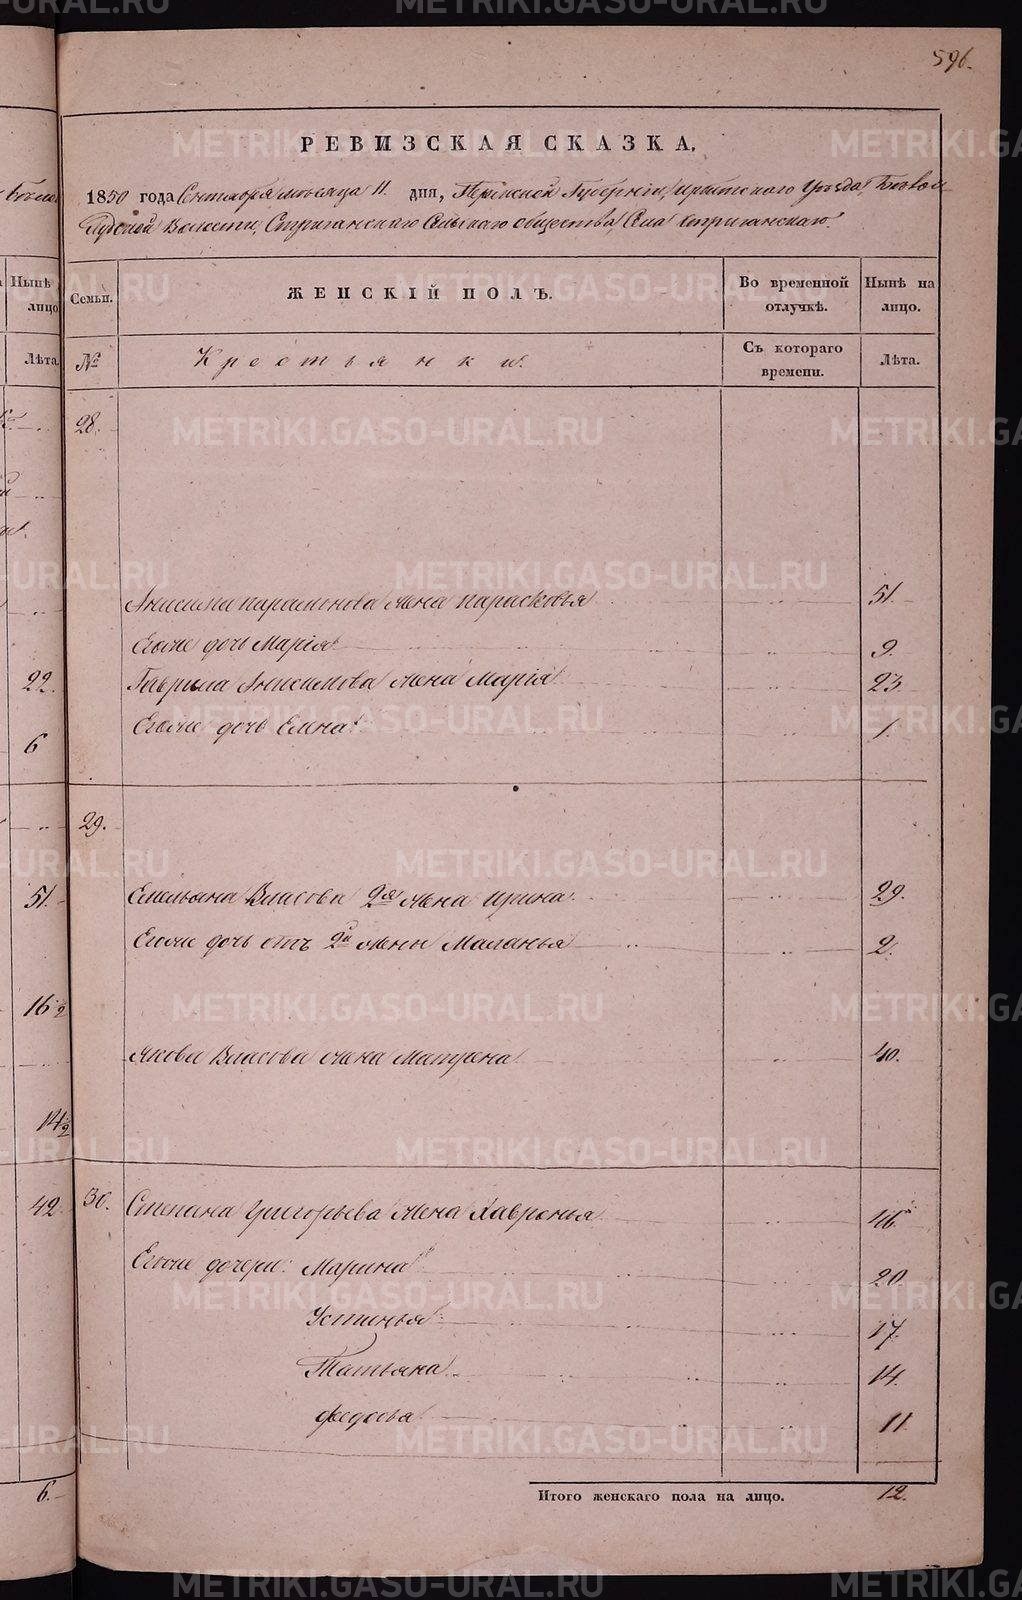 596.
РЕВИЗСКАЯ СКАЗКА.
1850 года Сентября месяца 11 дня, Пермской Губернии, Ирбитского Уезда, Белослудской Волости, Стриганского Сельскаго общества, Села Стриганскаго.
Семьи. ЖЕНСКІЙ ПОЛЪ. Во временной отлучкѣ. Нынѣ на лицо.
№ Крестьянки. Съ котораго времени. Лѣта.
28.
Анисима Парамонова жена Парасковья 51.
Его же дочь Марія 9.
Гаврила Анисимова жена Марія 23.
Его же дочь Елена 1.
29.
Емельяна Власова 2я жена Ирина 29.
Его же дочь от 2й жены Маланья 2.
Якова Власова жена Матрена 40.
30. Степана Григорьева жена Хавронья 46.
Его же дочери: Марина 20.
Устинья 17.
Татьяна 14.
Федосья 11.
Итого женскаго пола на лицо. 12.
Нынѣ лицо
Лѣта.
22.
6
51.
16½
14½
42.
6.
METRIKI.GASO-URAL.RU